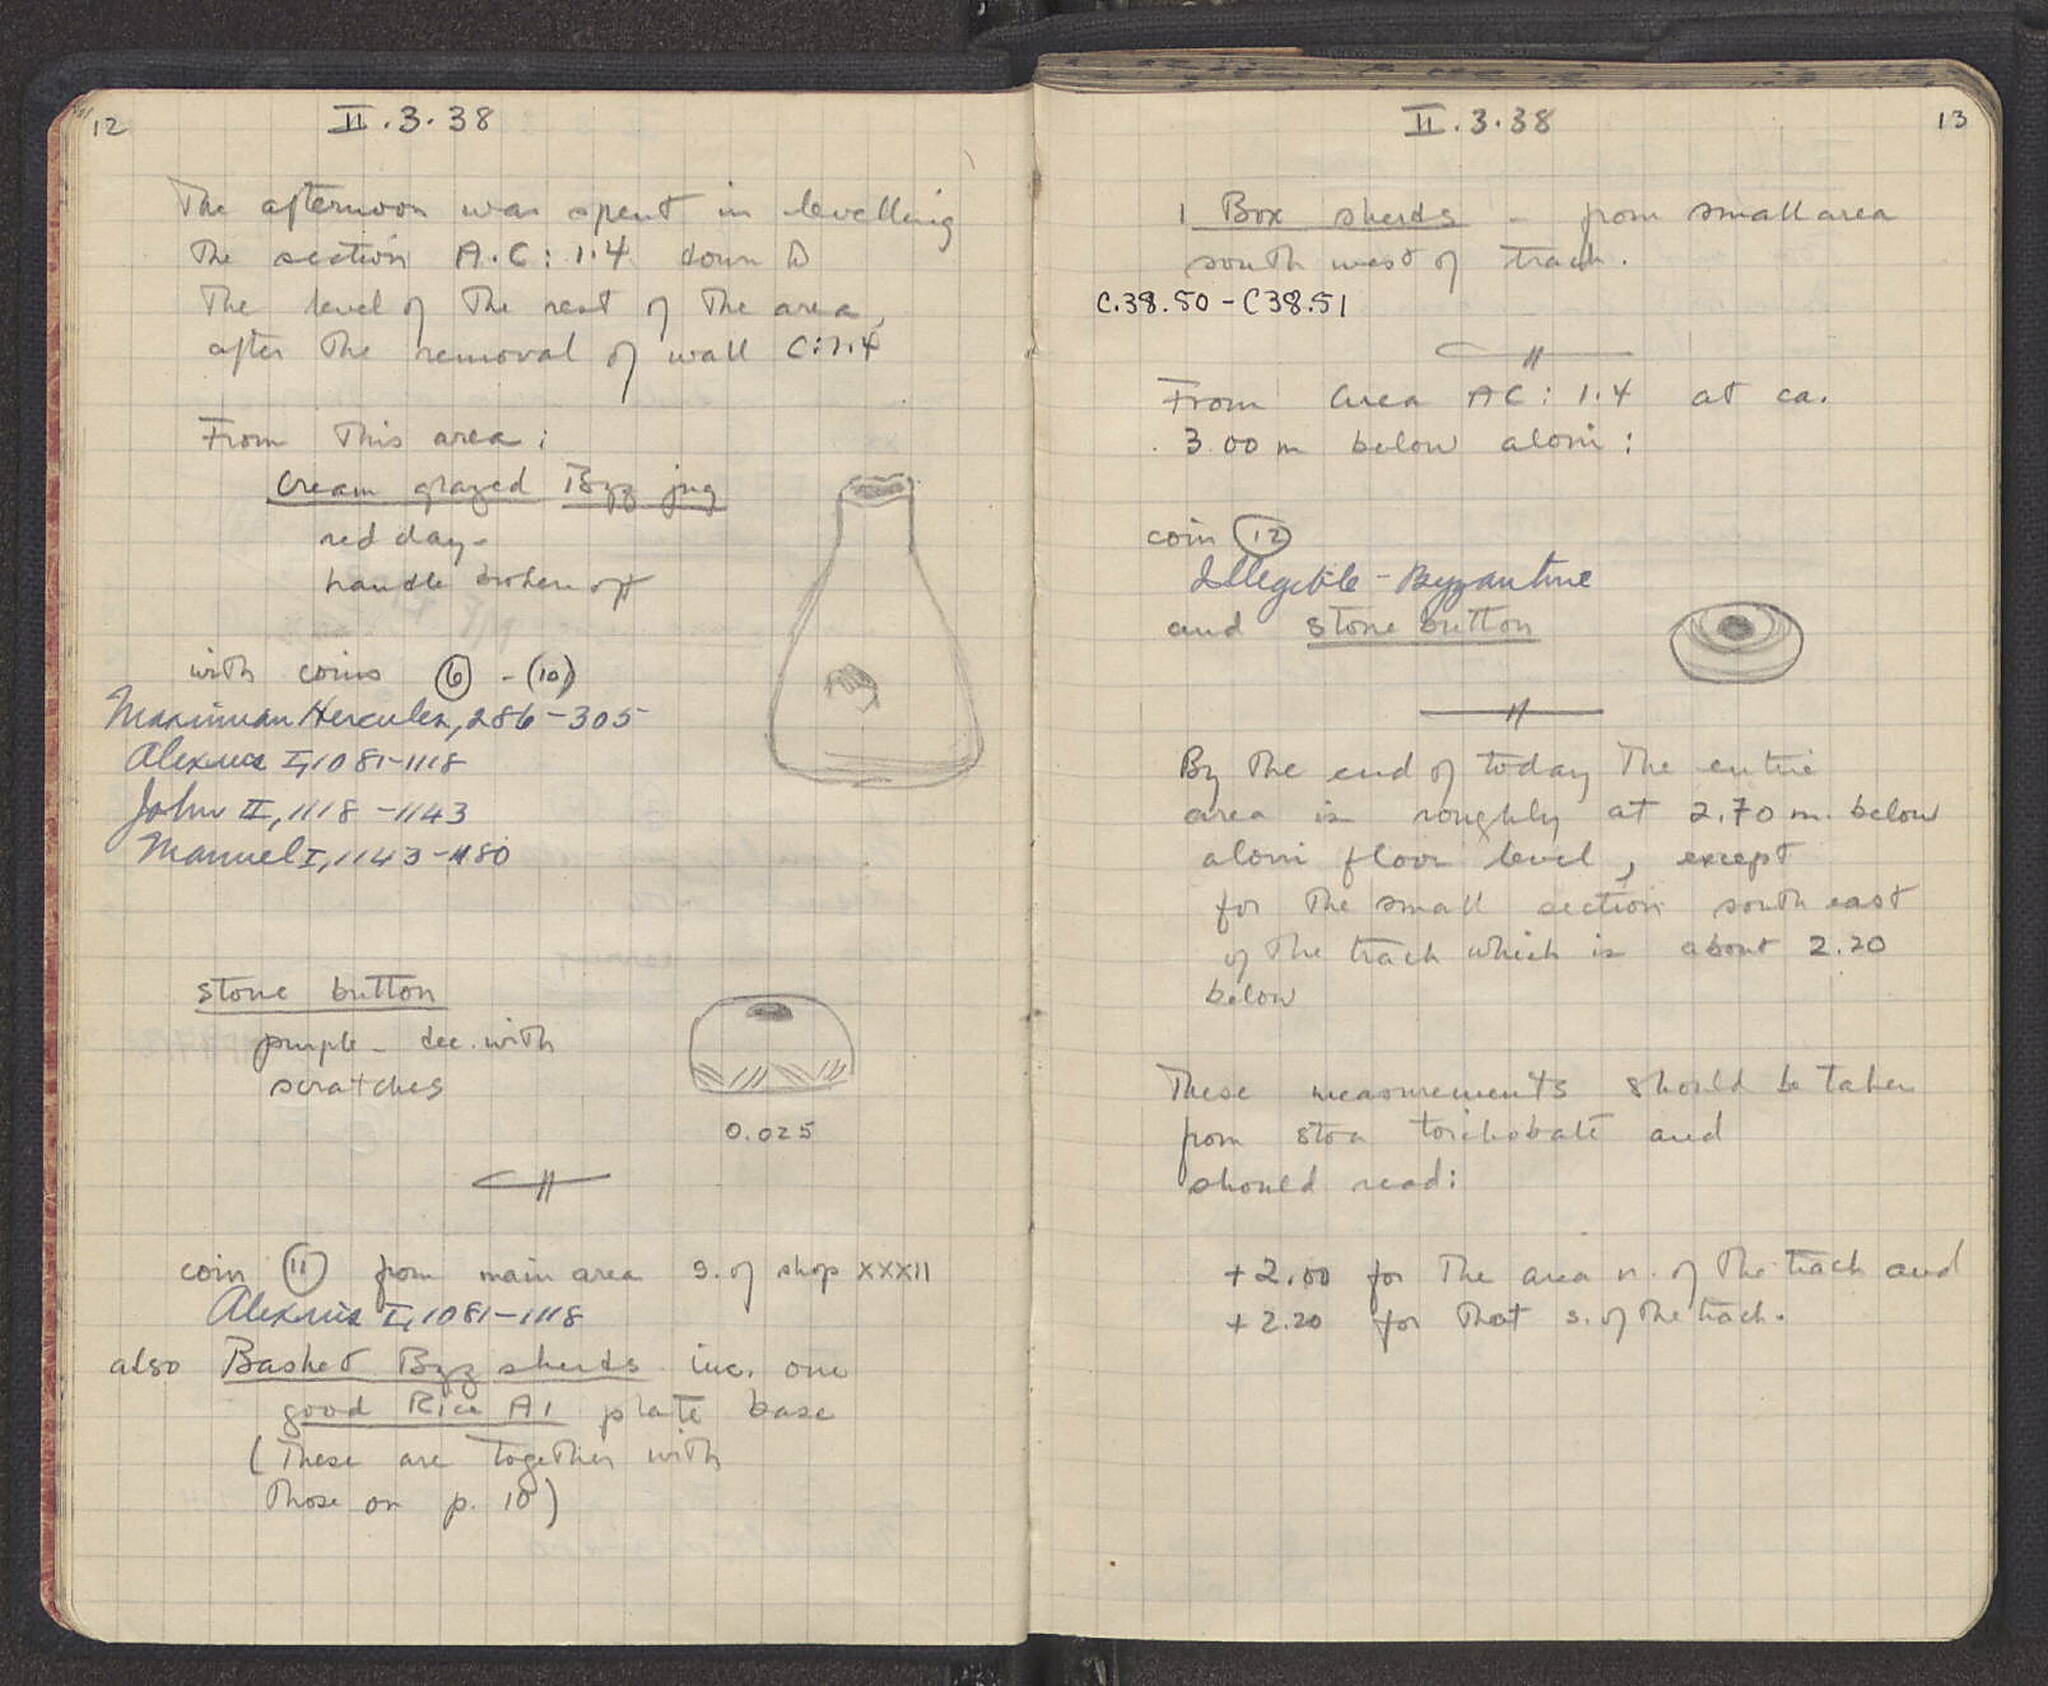 12
II.3.38
The afternoon was spent in levelling
the section A.C: 1.4 down to
the level of the rest of the area,
after the removal of wall C:1.4
From this area:
Cream glazed Byz jug
red clay-
handle broken off
with coins 6 - (10)
Maximian Hercules, 286-305
Alexius I, 1081-1118
John II, 1118-1143
Manuel I, 1143-1180
stone button
purple - dec. with
scratches
0.025
coin 11 from main area S. of shop XXXII
Alexius I, 1081-1118
also Basket Byz sherds inc. one
good Rice A1 plate base
(These are together with
those on p. 10)
II.3.38
13
1 Box sherds - from small area
south west of track.
C.38.50 - C38.51
From area AC: 1.4 at ca.
3.00 m below aloni:
coin 12
Illegible - Byzantine
and stone button
By the end of today the entire
area is roughly at 2.70 m. below
aloni floor level, except
for the small section south east
of the track which is about 2.20
below
These measurements should be taken
from stoa toichobate and
should read:
+2.00 for the area n. of the track and
+2.20 for that s. of the track.